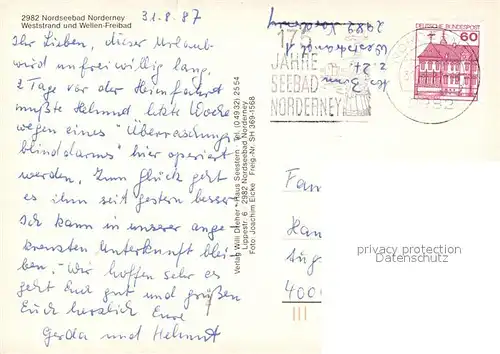 2982 Nordseebad Norderney
Weststrand und Wellen-Freibad
31.8.87
Ihr Lieben, dieser Urlaub
wird unfreiwillig lang.
2 Tage vor der Heimfahrt
mußte Helmut letzte Woche
wegen eines "Überraschungs
blinddarms" hier operiert
werden. Zum Glück geht
es ihm seit gestern besser
Ich kann in unserer ange
kreuzten Unterkunft blei
ben. - Wir hoffen sehr es
geht Euch gut und grüßen
Euch herzlich Eure
Gerda und Helmut
Verlag Willi Dreher • Haus Seestern • Tel. (0 49 32) 25 64
Lippestr. 6 · 2982 Nordseebad Norderney
Foto: Joachim Eicke Freig.-Nr. SH 369-1568
175
JAHRE
SEEBAD
NORDERNEY
DEUTSCHE BUNDESPOST
60
2982
Fam
Han
Aug
4000
privacy protection